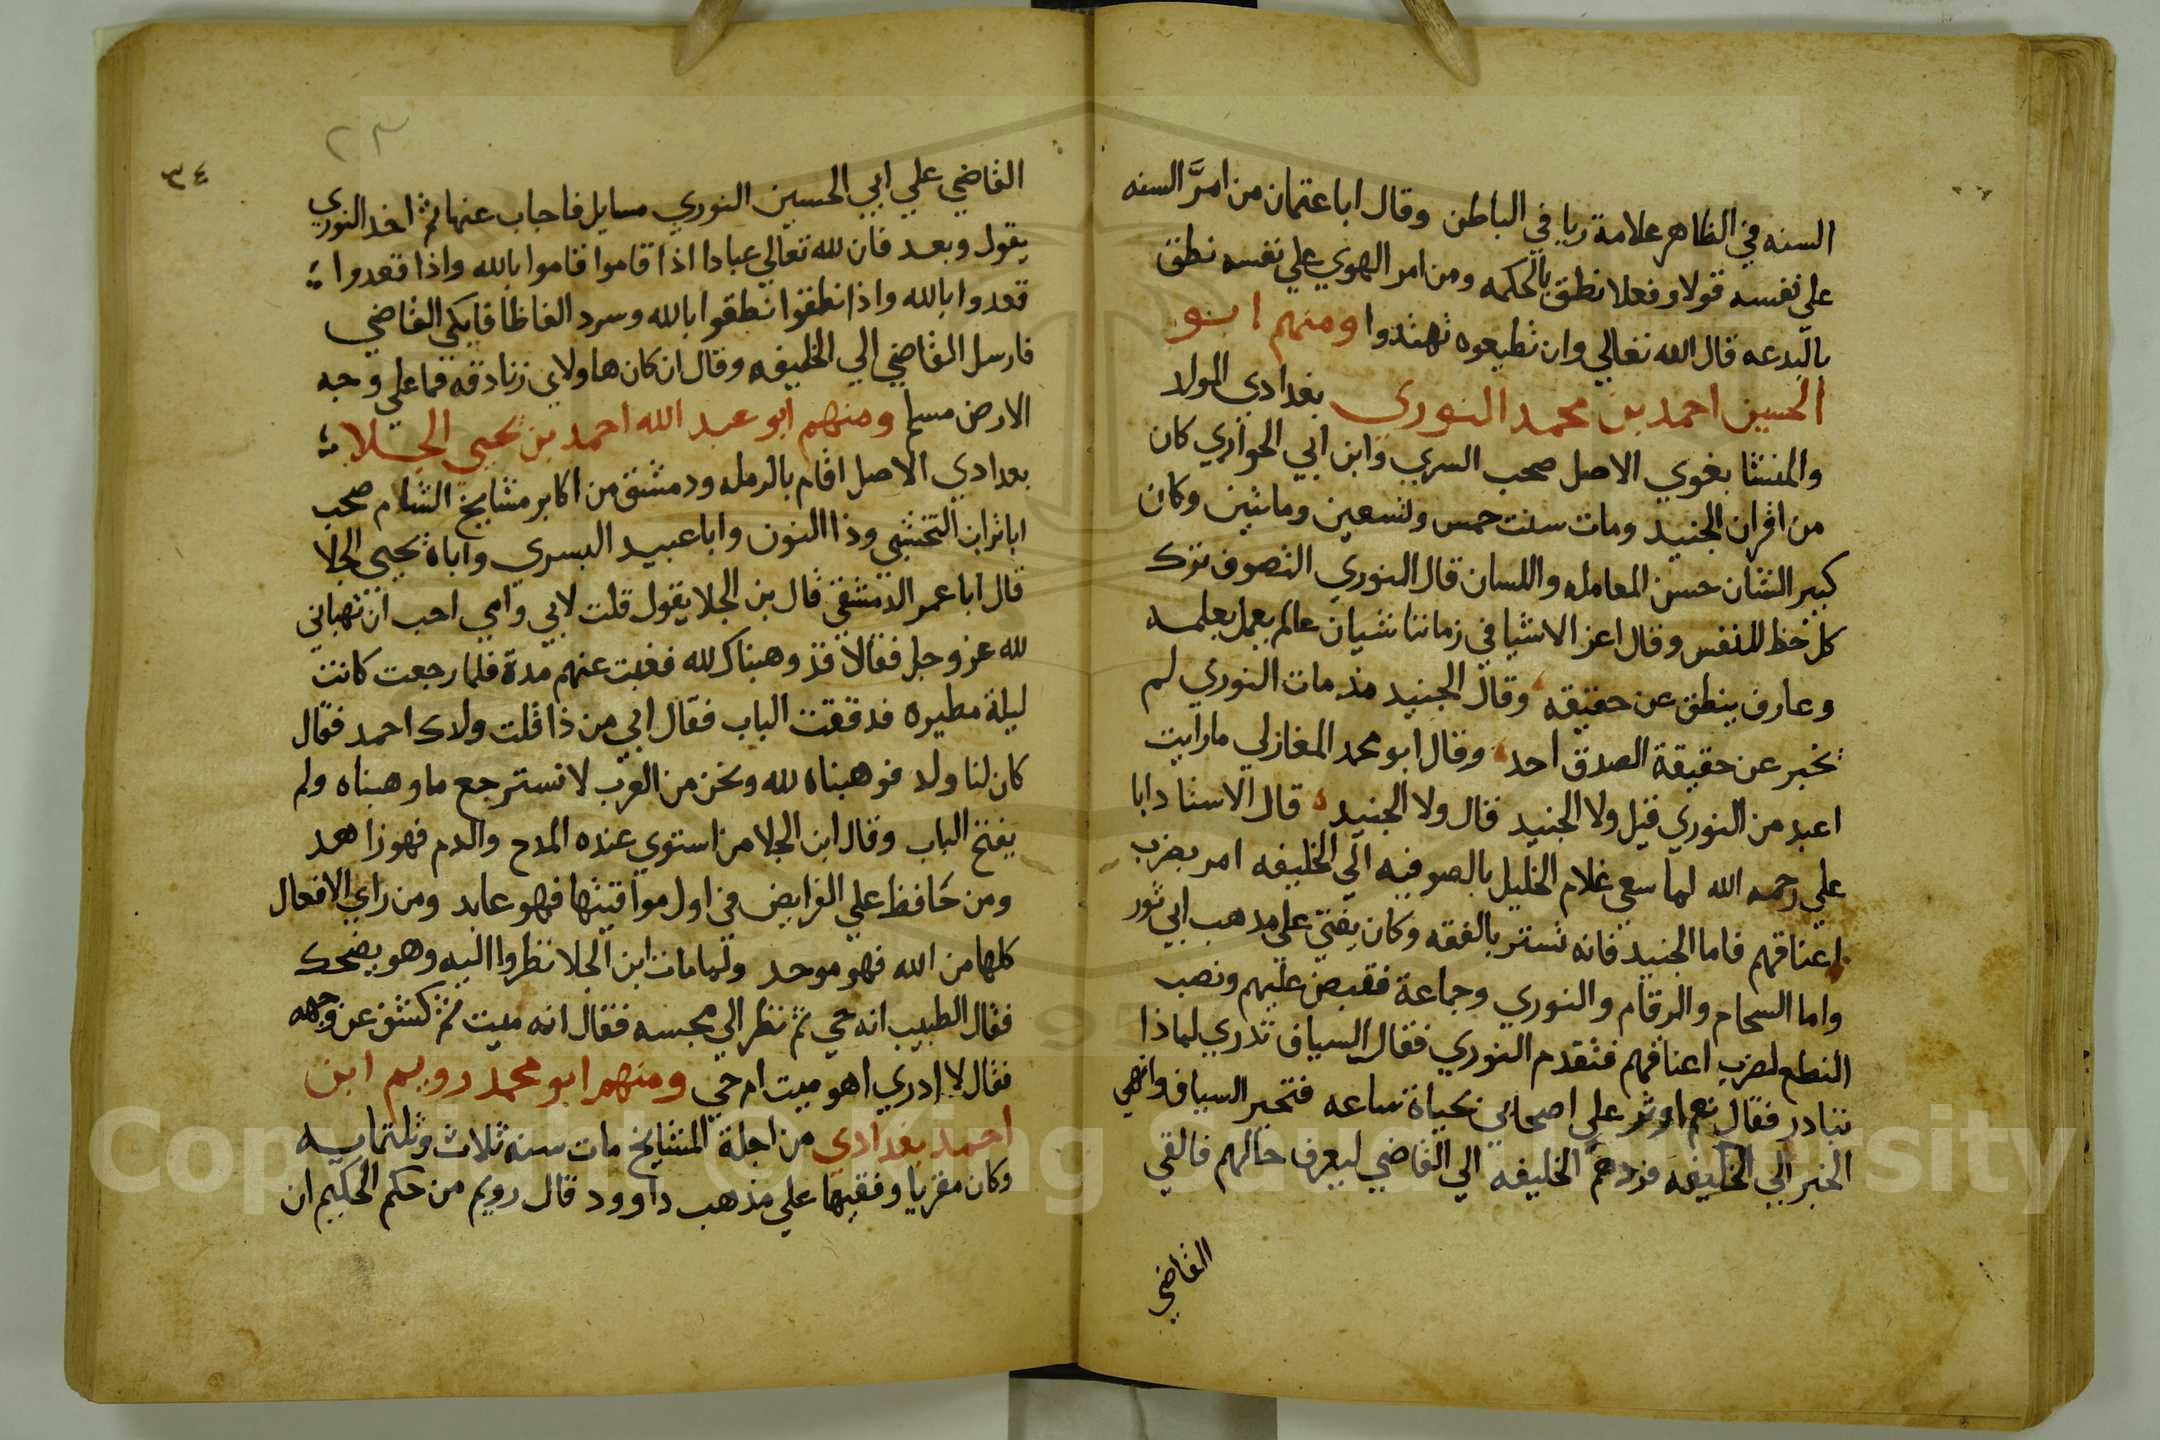 السنه في الظاهر علامة ريا في الباطن وقال ابا عثمان من امرَّ السنه
علي نفسه قولا وفعلا نطق بالحكمه ومن امر الهوي علي نفسه نطق
بالبدعه قال الله تعالي وان تطيعوه تهتدوا ومنهم ابو
الحسين احمد بن محمد النوري بغدادي المولد
والمنشا بغوي الاصل صحب السري وابن ابي الحواري كان
من اقران الجنيد ومات سنت خمس وتسعين وماتين وكان
كبير الشان حسن المعامله واللسان قال النوري التصوف ترك
كل حظ للنفس وقال اعز الاشيا في زماننا شيان عالم يعمل بعلمه
وعارف ينطق عن حقيقه وقال الجنيد مذ مات النوري لم
يخبر عن حقيقة الصدق احد وقال ابو محمد المغازلي ما رايت
اعبد من النوري قيل ولا الجنيد قال ولا الجنيد قال الاستاد ابا
علي رحمه الله لما سعي غلام الخليل بالصوفيه الي الخليفه امر بضرب
اعناقهم فاما الجنيد فانه تستر بالفقه وكان يفتي علي مدهب ابي ثور
واما السحام والرقام والنوري وجماعة فقبض عليهم ونصب
النطع لضرب اعناقهم فتقدم النوري فقال السياف تدري لماذا
تبادر فقال نعم اوثر علي اصحابي بحياة ساعه فتحير السياف وانهي
الخبر الي الخليفه فردهم الخليفه الي القاضي ليعرف حالهم فالقي
القاضي
٣٤
٢٣
القاضي علي ابي الحسين النوري مسايل فاجاب عنها ثم اخد النوري
يقول وبعد فان لله تعالي عبادا اذا قاموا قاموا بالله واذا قعدوا
قعدوا بالله واذا نطقوا نطقوا بالله وسرد الفاظا فابكي القاضي
فارسل القاضي الي الخليفه وقال ان كان هاولاي زنادقه فما علي وجه
الارض مسلم ومنهم ابو عبد الله احمد بن يحيي الجلا
بغدادي الاصل اقام بالرمله ودمشق من اكابر مشايخ الشام صحب
ابا تراب التخشبي وذا النون وابا عبيد البسري واباه يحيي الجلا
قال ابا عمر الدمشقي قال بن الجلا يقول قلت لابي وامي احب ان تهباني
لله عز وجل فقالا قد وهبناك لله فغبت عنهم مدة فلما رجعت كانت
ليلة مطيره فدققت الباب فقال ابي من ذا قلت ولدك احمد فقال
كان لنا ولد فوهبناه لله ونحن من العرب لا نسترجع ما وهبناه ولم
يفتح الباب وقال ابن الجلا من استوي عنده المدح والدم فهو زاهد
ومن حافظ علي الفرايض في اول مواقيتها فهو عابد ومن راي الافعال
كلها من الله فهو موحد ولما مات ابن الجلا نظروا اليه وهو يضحك
فقال الطبيب انه حي ثم نظر الي مجسه فقال انه ميت ثم كشف عن وجهه
فقال لا ادري اهو ميت ام حي ومنهم ابو محمد رويم ابن
احمد بغدادي من اجلة المشايخ مات سنه ثلاث وثلتمايه
وكان مقريا وفقيها علي مذهب داوود قال رويم من حكم الحكيم ان
Copyright © King Saud University